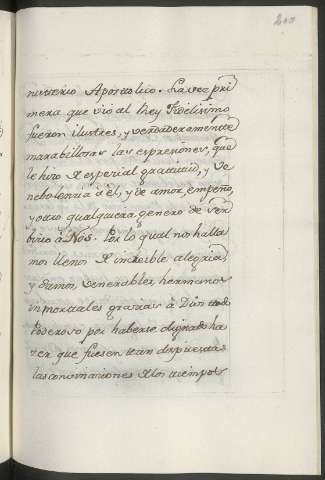 200
nisterio Apostolico. La vez pri
mera que vió al Rey Fidelisimo
fueron ilustres, y verdaderamente
marabillosas las expresiones, que
le hizo de especial gratitud, y be
nebolencia à èl, y de amor, empeño,
y otro qualquiera genero de ser
bicio à Nós. Por lo qual nos halla
mos llenos de increible alegria,
y damos, venerables hermanos
inmortales gracias à Dios todo
Poderoso por haberse dignado ha
zer que fuesen tan dispuestas
las convinaciones de los tiempos